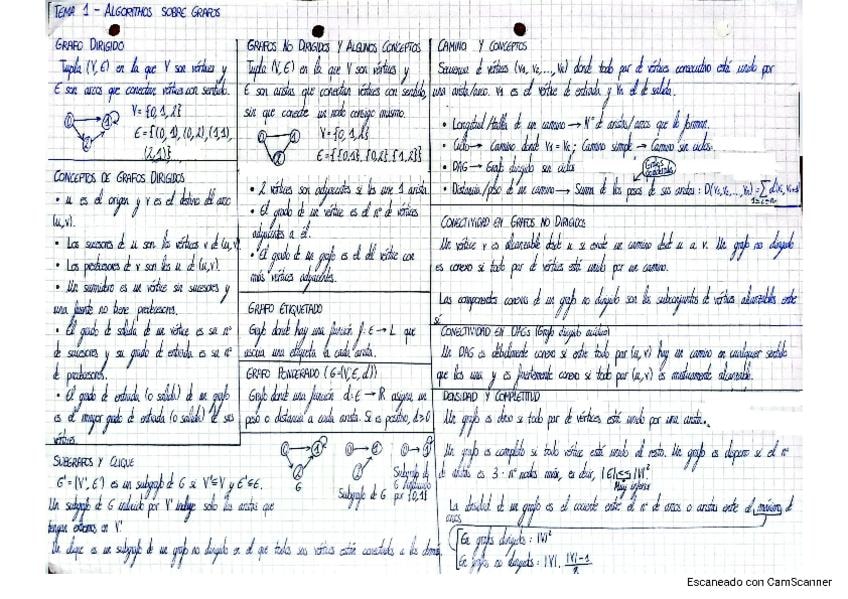 TEMA 1 - ALGORITMOS SOBRE GRAFOS
GRAFO DIRIGIDO
Tupla (V, E) en la que V son vértices y
E son arcos que conectan vértices con sentido.
V = {0, 1, 2}
E = {(0, 1), (0, 2), (1, 1),
(2, 1)}
0
1
2
CONCEPTOS DE GRAFOS DIRIGIDOS
• u es el origen y v es el destino del arco
(u, v).
• Los sucesores de u son los vértices v de (u, v)
• Los predecesores de v son los u de (u, v).
• Un sumidero es un vértice sin sucesores y
una fuente no tiene predecesores.
• El grado de salida de un vértice es su nº
de sucesores y su grado de entrada es su nº
de predecesores.
• El grado de entrada (o salida) de un grafo
es el mayor grado de entrada (o salida) de sus
vértices.
GRAFOS NO DIRIGIDOS Y ALGUNOS CONCEPTOS
Tupla (V, E) en la que V son vértices y
E son aristas que conectan vértices sin sentido,
sin que conecte un nodo consigo mismo.
V = {0, 1, 2}
E = {{0,1}, {0,2}, {1,2}}
0
1
2
• 2 vértices son adyacentes si les une 1 arista.
• El grado de un vértice es el nº de vértices
adyacentes a él.
• El grado de un grafo es el del vértice con
más vértices adyacentes.
GRAFO ETIQUETADO
Grafo donde hay una función f: E → L que
asocia una etiqueta a cada arista.
GRAFO PONDERADO (G=(V, E, d))
Grafo donde una función d: E → R asigna un
peso o distancia a cada arista. Si es positivo, d>0
CAMINO Y CONCEPTOS
Secuencia de vértices (V₁, V₂, ..., Vₖ) donde todo par de vértices consecutivo está unido por
una arista/arco. V₁ es el vértice de entrada y Vₖ el de salida.
• Longitud/talla de un camino → Nº de aristas/arcos que lo forman.
• Ciclo → Camino donde V₁ = Vₖ; Camino simple → Camino sin ciclos.
• DAG → Grafo dirigido sin ciclos
Grafos ponderados
• Distancia/peso de un camino → Suma de los pesos de sus aristas :
CONECTIVIDAD EN GRAFOS NO DIRIGIDOS
Un vértice v es alcanzable desde u si existe un camino desde u a v. Un grafo no dirigido
es conexo si todo par de vértices está unido por un camino.
Las componentes conexas de un grafo no dirigido son los subconjuntos de vértices alcanzables entre
sí
CONECTIVIDAD EN DAGs (Grafo dirigido acíclico)
Un DAG es débilmente conexo si entre todo par (u, v) hay un camino en cualquier sentido
que los una y es fuertemente conexo si todo par (u, v) es mutuamente alcanzable.
DENSIDAD Y COMPLETITUD
Un grafo es denso si todo par de vértices está unido por una arista.
Un grafo es completo si todo vértice está unido al resto. Un grafo es disperso si el nº
de aristas es 3 · nº nodos máx, es decir, |E| << |V|²
Muy inferior
La densidad de un grafo es el cociente entre el nº de arcos o aristas entre el máximo de
arcos
En grafos dirigidos : |V|²
En grafos no dirigidos : |V| · |V|-1
2
SUBGRAFOS Y CLIQUE
G' = (V', E') es un subgrafo de G si V'⊆V y E'⊆E.
Un subgrafo de G inducido por V' incluye solo las aristas que
tengan extremos en V'
Un clique es un subgrafo de un grafo no dirigido en el que todos sus vértices están conectados a los demás.
0
1
2
G
0
1
2
Subgrafo de G
0
1
Subgrafo de
G inducido
por {0,1}
Escaneado con CamScanner